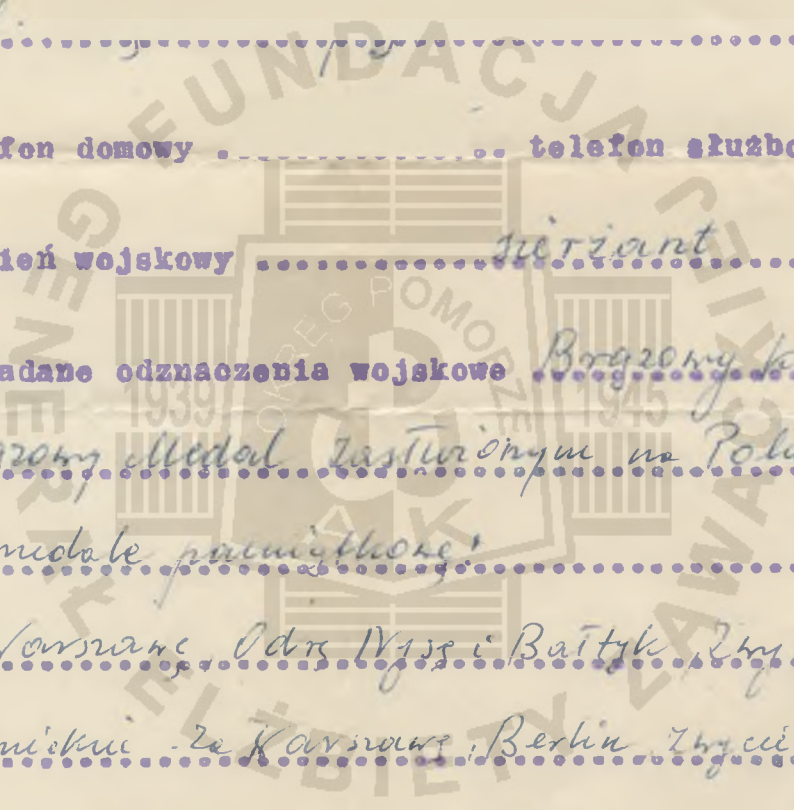 fon domowy ................ telefon służbo
ień wojskowy ................ sierżant
adane odznaczenia wojskowe Brązowy K
ązowy Medal Zasłużonym na Polu
medale pamiątkowe:
Warszawę, Odrę Nysę i Bałtyk, Zwy
Za Warszawę, Berlin Zwycię
FUNDACJA GENERAŁ ELŻBIETY ZAWACKIEJ
OKRĘG POMORZE
1939 1945
AK